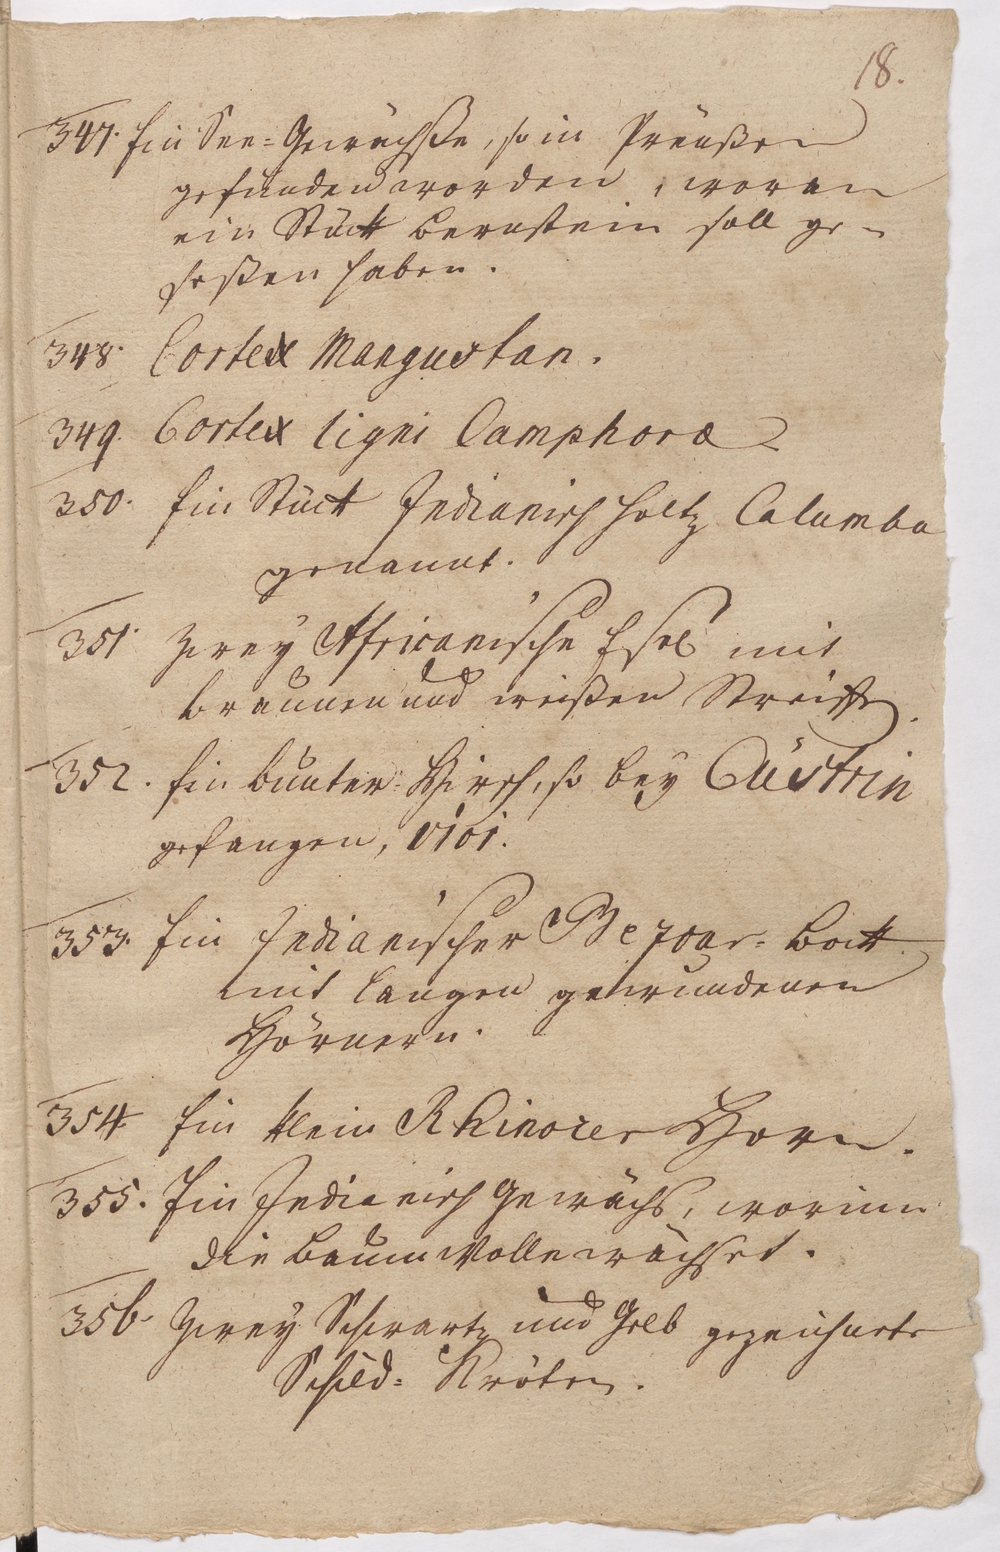 18.
347. Ein See=Gewächße, so in Preüßen
gefunden worden, woran
ein Stück bernstein soll ge=
seßen haben.
348. Cortex Mangustan.
349. Cortex ligni Camphoræ
350. Ein Stück Indianisch Holtz Calumba
genannt.
351. Zwey Africanische Esel mit
braunen und weißen Streiffen.
352. Ein bunter Hirsch, so bey Cüstrin
gefangen, 1701.
353. Ein Indianischer Bezoar=bock
mit langen gewundenen
Hörnern.
354 Ein klein Rhinocer Horn.
355. Ein Indianisch Gewächs, worinn
die baum Wolle wächset.
356. Zwey Schwartz und Gelb gezeichnete
Schild=Kröten.